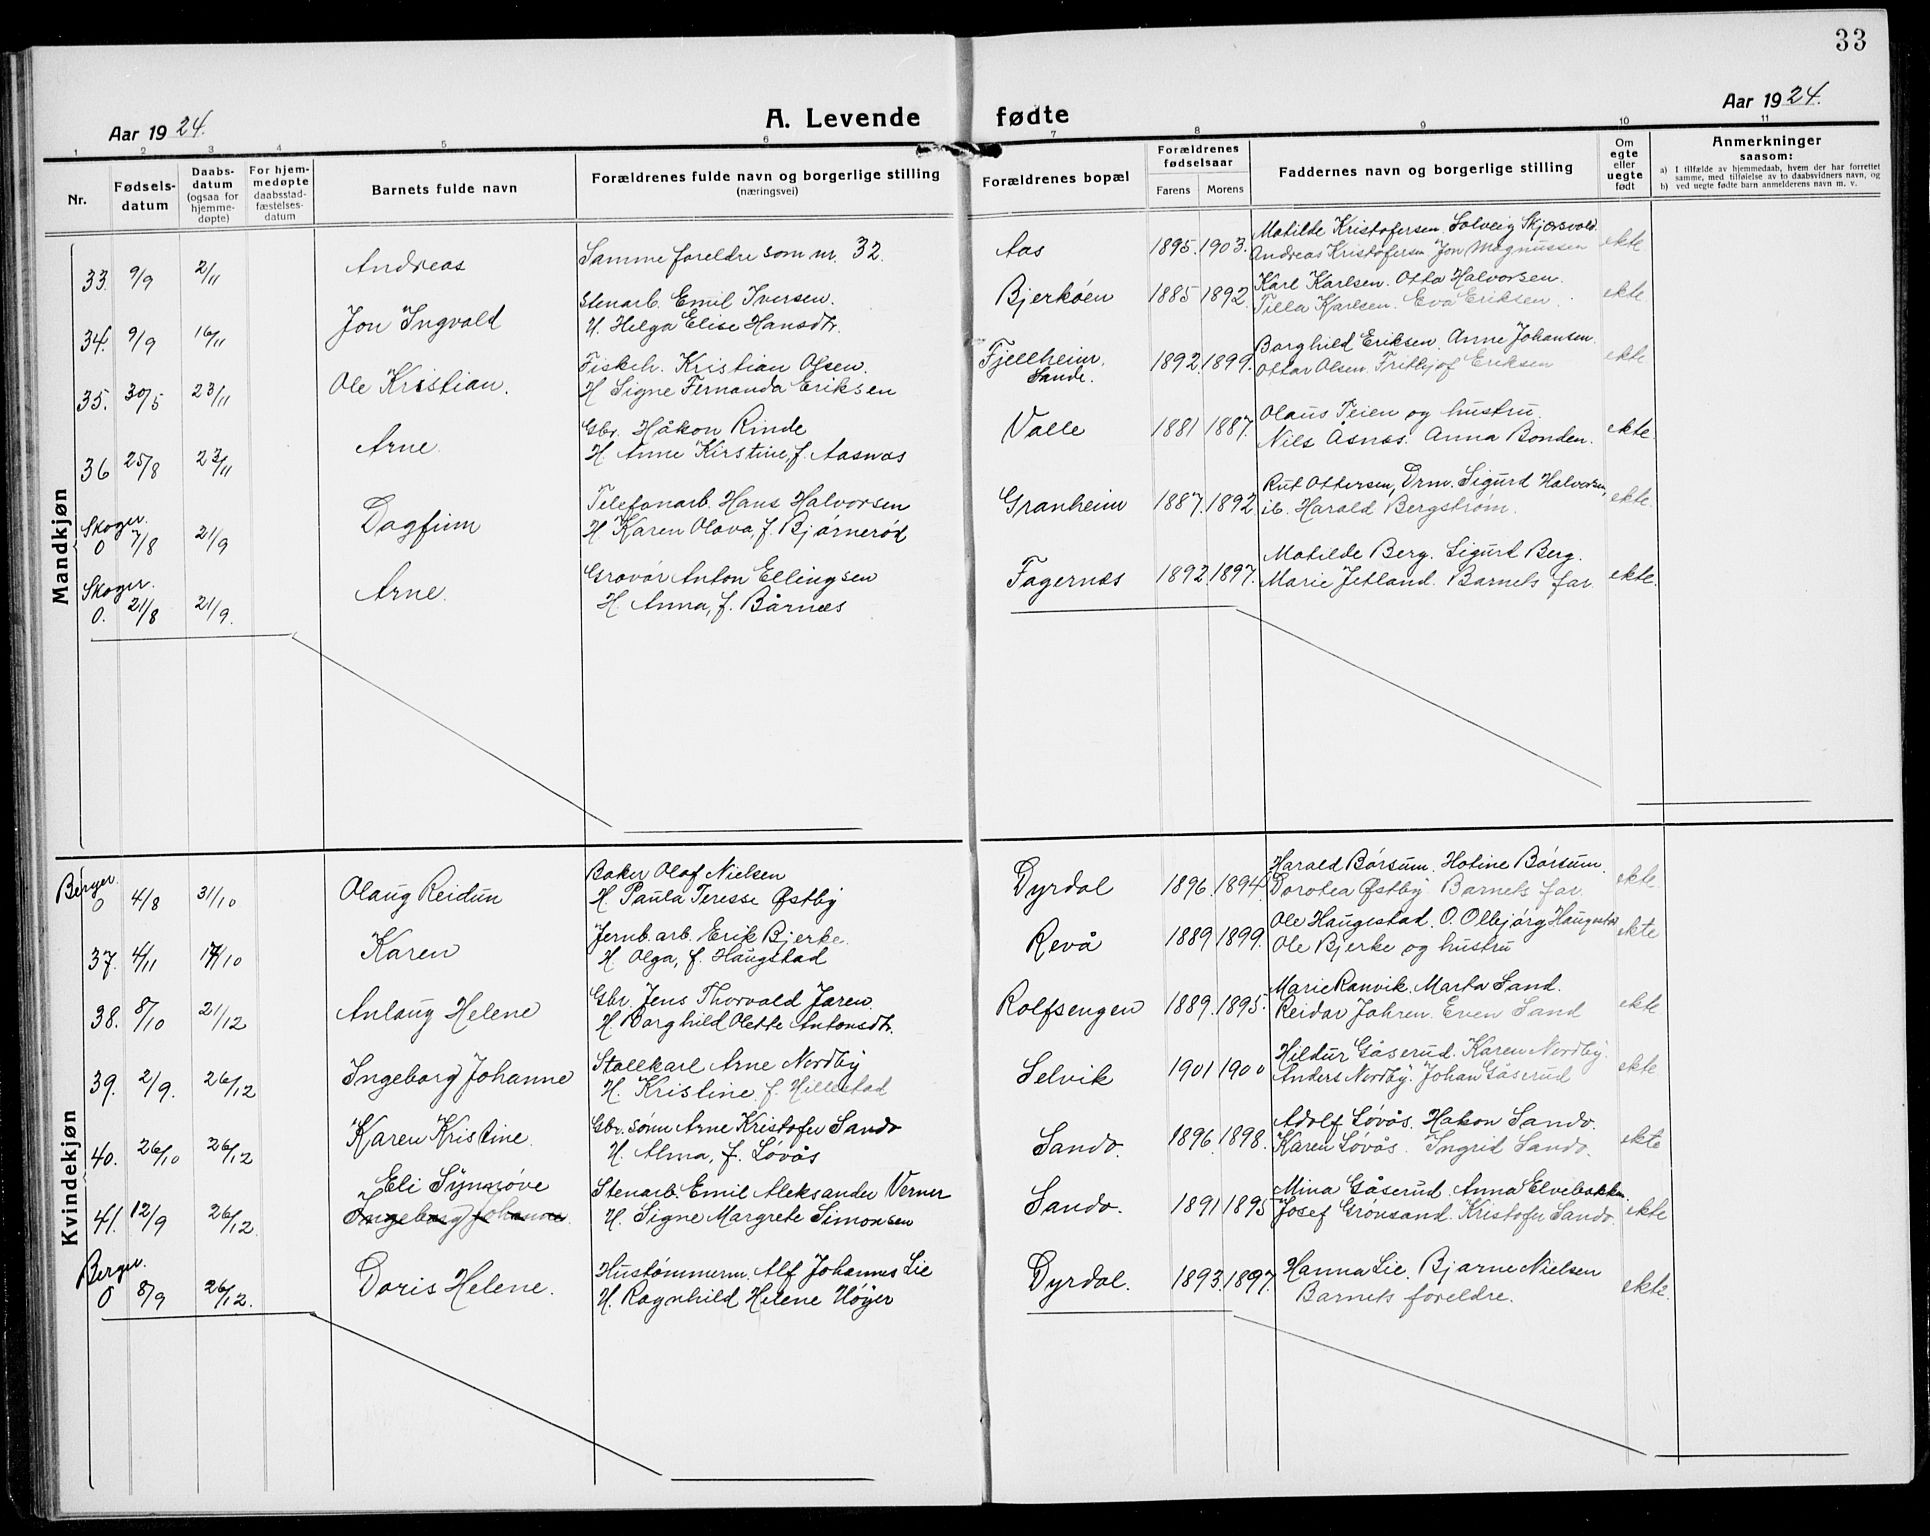 33
Aar 1924.
A. Levende fødte
Aar 1924.
1 2 3 4 5 6 7 8 9 10 11
Nr.
Fødsels-
datum
Daabs-
datum
(ogsaa for
hjemme-
døpte)
For hjem-
medøpte
daabsstad-
fæstelses-
datum
Barnets fulde navn
Forældrenes fulde navn og borgerlige stilling
(næringsvei)
Forældrenes bopæl
Forældrenes
fødselsaar
Farens Morens
Faddernes navn og borgerlige stilling
Om
egte
eller
uegte
født
Anmerkninger
saasom:
a) I tilfælde av hjemmedaab, hvem der har forrettet
samme, med tilføielse av to daabsvidners navn, og
b) ved uegte fødte barn anmelderens navn m. v.
Mandkjøn
33. 9/9 2/11 Andreas Samme foreldre som nr. 32. Aas 1895. 1903. Matilde Kristofersen. Solveig Skjærsvold. ekte
Andreas Kristofersen Jon Magnussen
34. 9/9 16/11 Jon Ingvald Stenarb. Emil Iversen. Bjerkøen 1885 1892. Karl Karlsen. Otto Halvorsen. ekte
H. Helga Elise Hansdtr. Tilla Karlsen. Eva Eriksen.
35. 30/5 23/11 Ole Kristian. Fiskeh. Kristian Olsen. Fjellheim, 1892. 1899. Borghild Eriksen. Anne Johansen. ekte
H Signe Fernanda Eriksen Sande. Ottar Olsen. Fritjof Eriksen
36 25/8 23/11 Arne. Gbr. Håkon Rinde Valle 1881 1887. Olaus Teien og hustru. ekte.
H Anne Kirstine, f. Aasnæs Nils Åsnæs. Anna Bonden.
Skoger.
0 7/8 21/9 Dagfinn Telefonarb. Hans Halvorsen Granheim 1887. 1892 Rut Ottersen, Drm. Sigurd Halvorsen, ekte.
H Karen Olava, f. Bjørnerød ib. Harald Bergstrøm.
Skoger.
0. 21/8 21/9. Arne. Gravør Anton Ellingsen Fagernes 1892. 1897. Matilde Berg. Sigurd Berg. ekte.
H. Anna, f. Bårnes Marie Jetland. Barnets far
Kvindekjøn
Berger.
0 4/8 31/10 Olaug Reidun Baker Olaf Nielsen Dyrdal 1896. 1894. Harald Børsum. Hotine Børsum. ekte
H Paula Teresse Østby Dorotea Østby Barnets far
37. 4/11 14/10 Karen Jernb. arb. Erik Bjerke. Revå 1889 1899. Ole Haugestad. O. Olbjørg Haugestad ekte
H. Olga, f. Haugstad Ole Bjerke og hustru
38. 8/10 21/12 Anlaug Helene Gbr. Jens Thorvald Jaren. Rolfsengen 1889. 1895. Marie Ranvik. Marta Sand. ekte
H. Borghild Olette Antonsdtr. Reidar Jahren. Even Sand
39. 2/9. 26/12 Ingeborg Johanne Stallkarl Arne Nordby Selvik 1901 1900 Hildur Gåserud. Karen Nordby. ekte
H. Kristine f. Hillestad Anders Nordby. Johan Gåserud
40. 26/10 26/12 Karen Kristine. Gbr. sønn Arne Kristofer Sando Sando. 1896. 1898. Adolf Løvås. Hakon Sando. ekte
H. Alma, f. Løvås Karen Løvås. Ingrid Sando.
41. 12/9 26/12. Eli Synnøve Stenarb. Emil Aleksander Verner Sando. 1891 1895 Mina Gåserud. Anna Elvebakken. ekte
Ingeborg Johanne. H. Signe Margrete Simonsen Josef Grønsand. Kristofer Sando.
Berger.
0 8/9 26/12. Doris Helene. Hustømmerm. Alf Johannes Lie Dyrdal. 1893. 1897. Hanna Lie. Bjarne Nielsen ekte.
H. Ragnhild Helene Høyer Barnets foreldre.